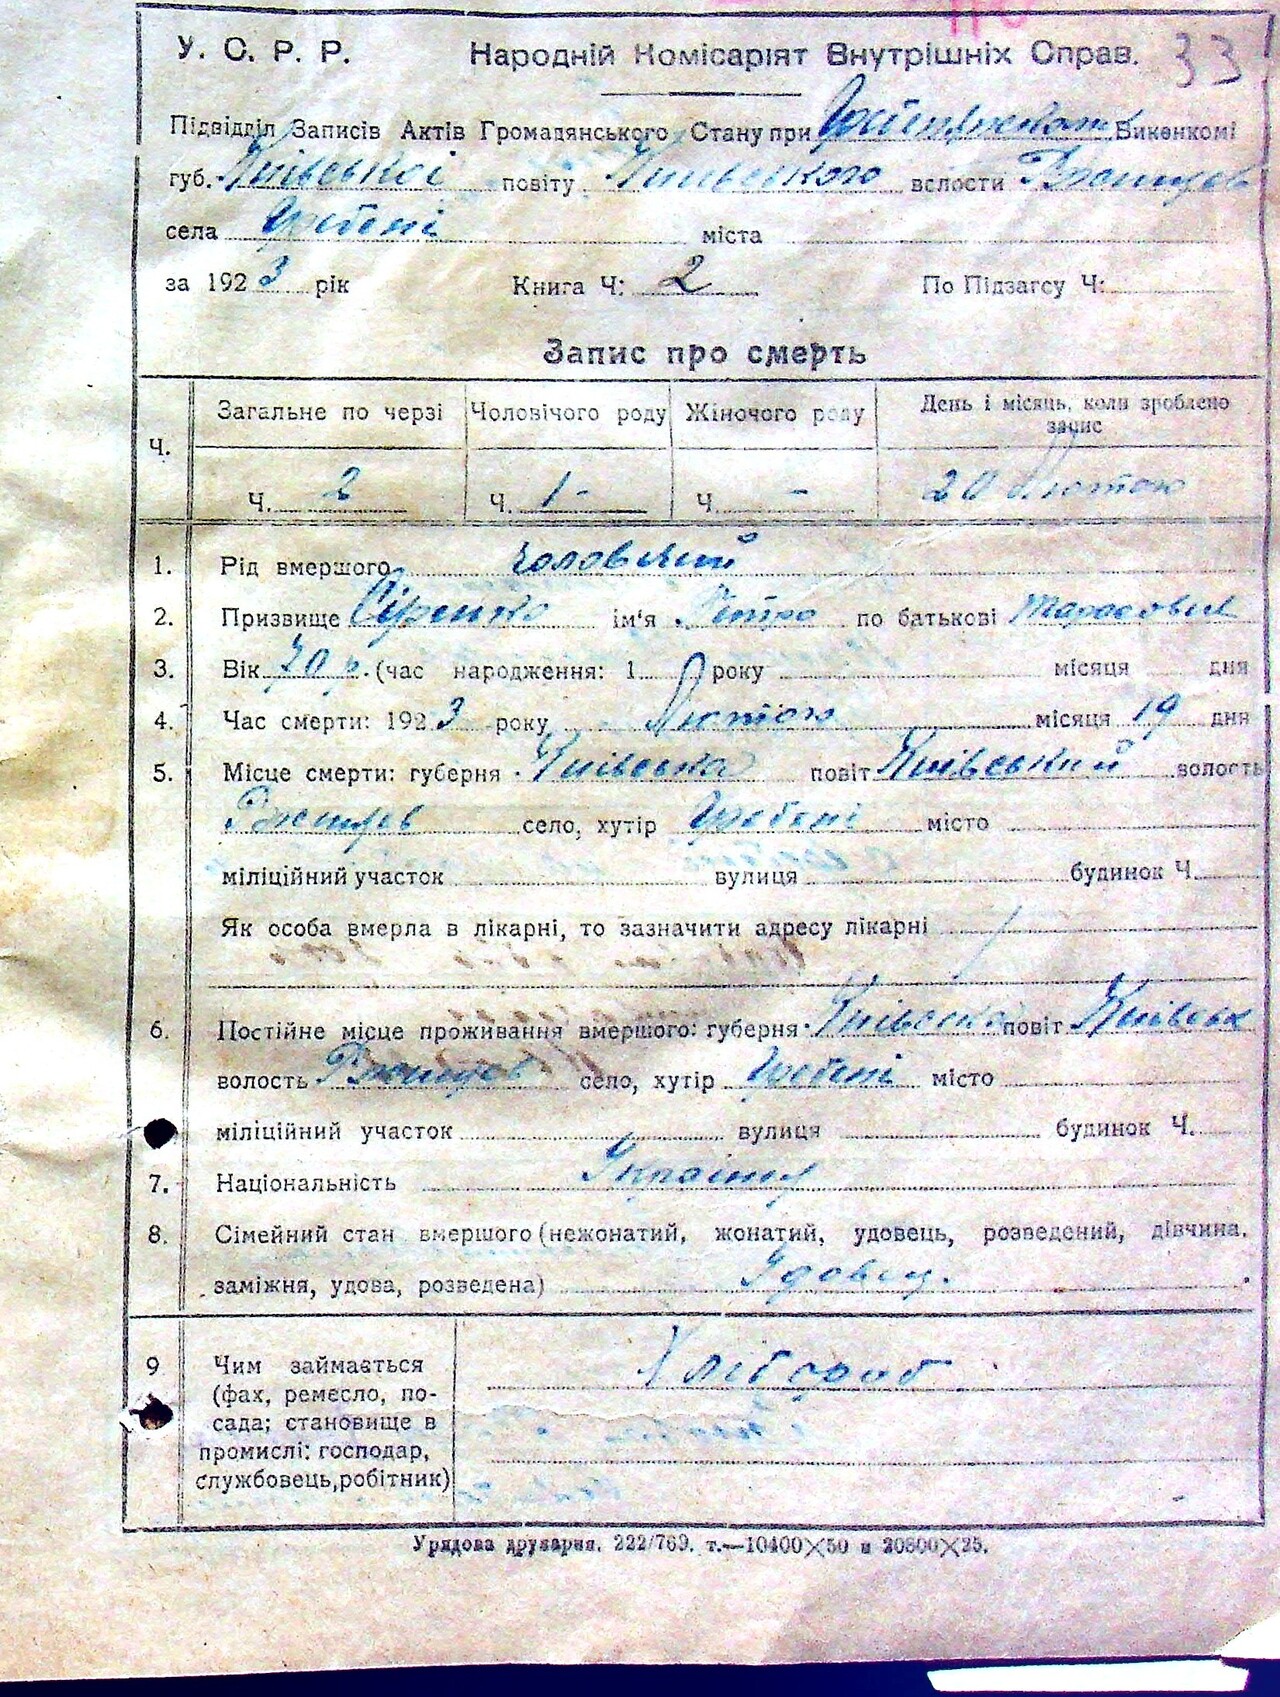 33
У. С. Р. Р. Народній Комісаріят Внутрішніх Справ.
Підвідділ Записів Актів Громадянського Стану при Викенкомі
губ. Київської повіту Київського волости Ржищев
села Гребені міста
за 1923 рік Книга Ч: 2 По Підзагсу Ч:
Запис про смерть
Ч. Загальне по черзі Чоловічого роду Жіночого роду День і місяць, коли зроблено
запис
Ч. 2 Ч. 1 - Ч. - 20 Лютою
1. Рід вмершого чоловічий
2. Призвище Сіренко ім'я Петро по батькові Тарасович
3. Вік 70 р. (час народження: 1 року місяця дня
4. Час смерти: 1923 року Лютою місяця 19 дня
5. Місце смерти: губерня Київська повіт Київський волость
Ржищев село, хутір Гребені місто
міліційний участок вулиця будинок Ч.
Як особа вмерла в лікарні, то зазначити адресу лікарні
6. Постійне місце проживання вмершого: губерня Київська повіт Київськ
волость Ржищев село, хутір Гребені місто
міліційний участок вулиця будинок Ч.
7. Національність
8. Сімейний стан вмершого (нежонатий, жонатий, удовець, розведений, дівчина,
заміжня, удова, розведена) Удовец.
9 Чим займається Хлібороб
(фах, ремесло, по-
сада; становище в
промислі: господар,
службовець, робітник)
Урядова друкарня. 222/769. т.—10400×50 и 20600×25.